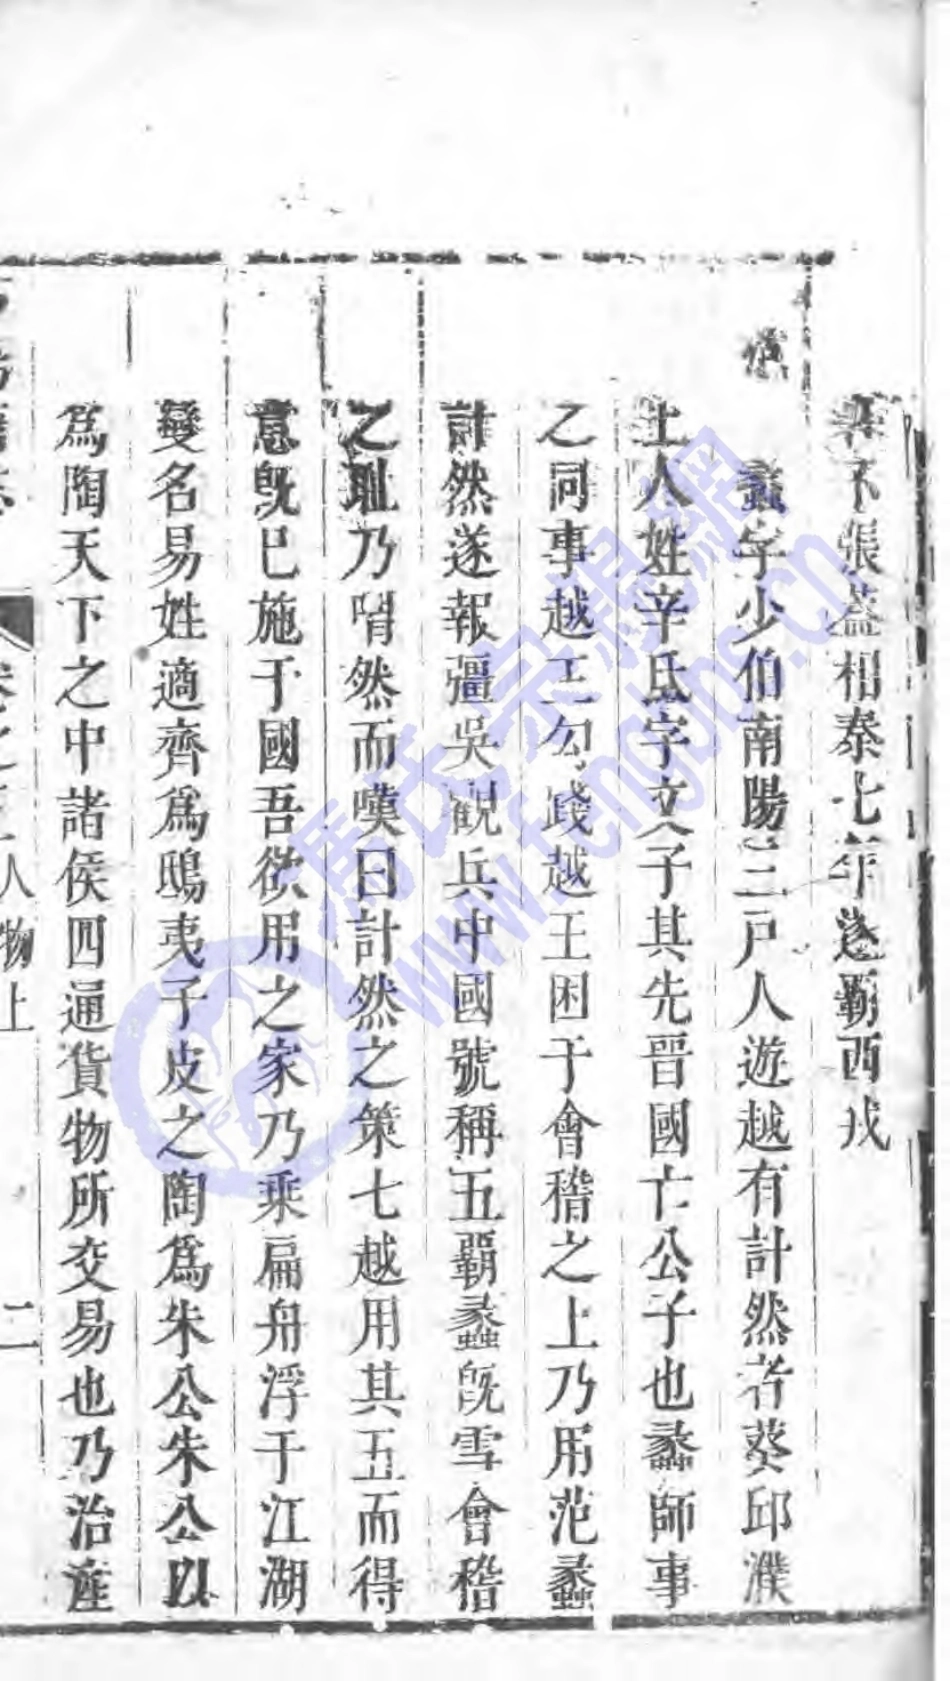 暑不張蓋相秦七年遂霸西戎
蠡字少伯南陽三戸人遊越有計然者葵邱濮
上人姓辛氏字文子其先晉國亡公子也蠡師事
之同事越王勾踐越王困于會稽之上乃用范蠡
計然遂報彊吳觀兵中國號稱五覇蠡旣雪會稽
之耻乃喟然而嘆曰計然之策七越用其五而得
意旣已施于國吾欲用之家乃乘扁舟浮于江湖
變名易姓適齊爲鴟夷子皮之陶爲朱公朱公以
爲陶天下之中諸侯四通貨物所交易也乃治產
人物上 二
馮氏宗親網
www.fengbbs.cn